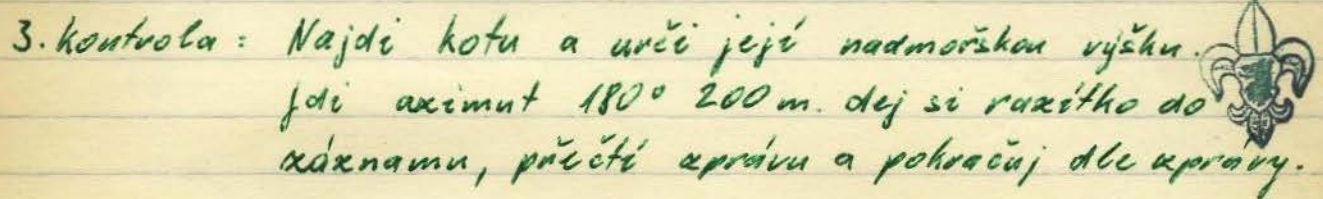 3. kontrola = Najdi kotu a urči její nadmořskou výšku.
Jdi azimut 180° 200 m. dej si razítko do
záznamu, přečti zprávu a pokračuj dle zprávy.